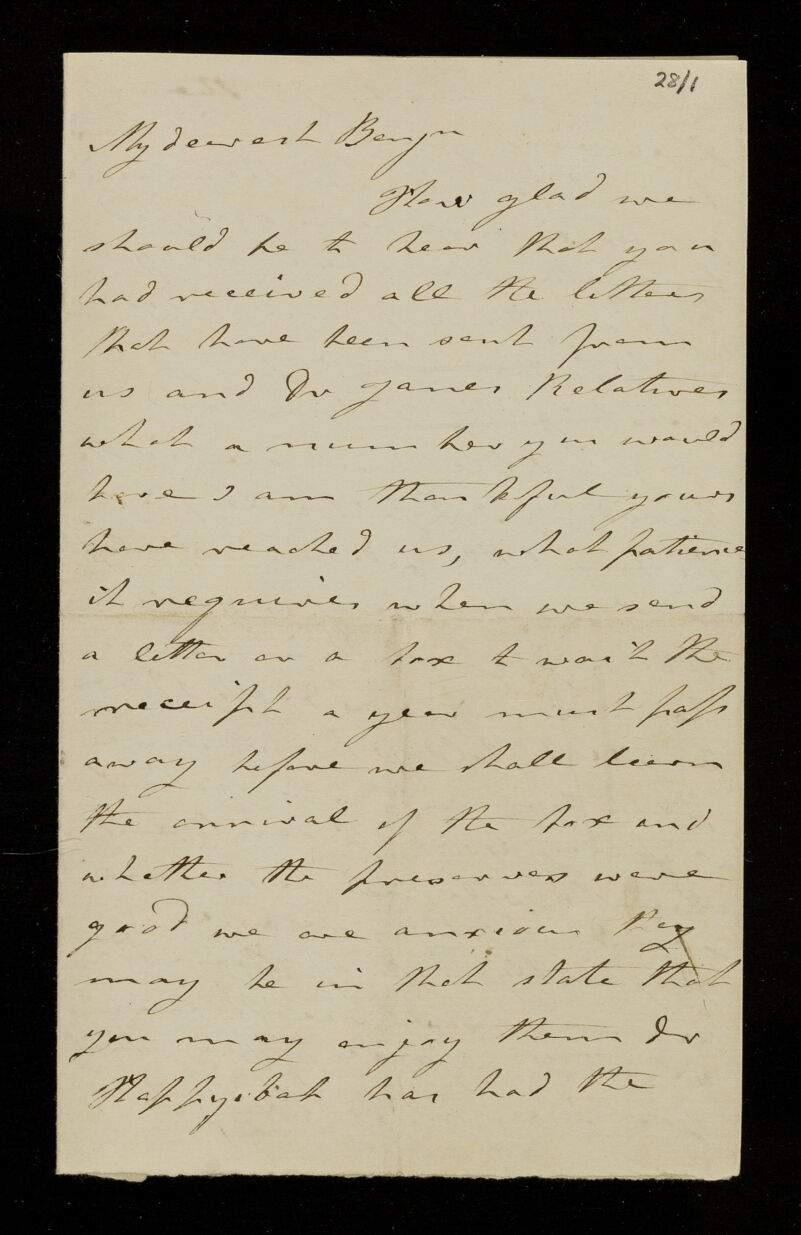 28/1
My dearest Benjn
How glad we
should be to hear that you
had received all the letters
that have been sent from
us and Dr Janes Relatives
what a number you would
have I am thankful yours
have reached us, what patience
it requires when we send
a letter or a box to wait the
receipt a year must pass
away before we shall learn
the arrival of the box and
whether the preserves were
good we are anxious they
may be in that state that
you may enjoy them Dr
has had the